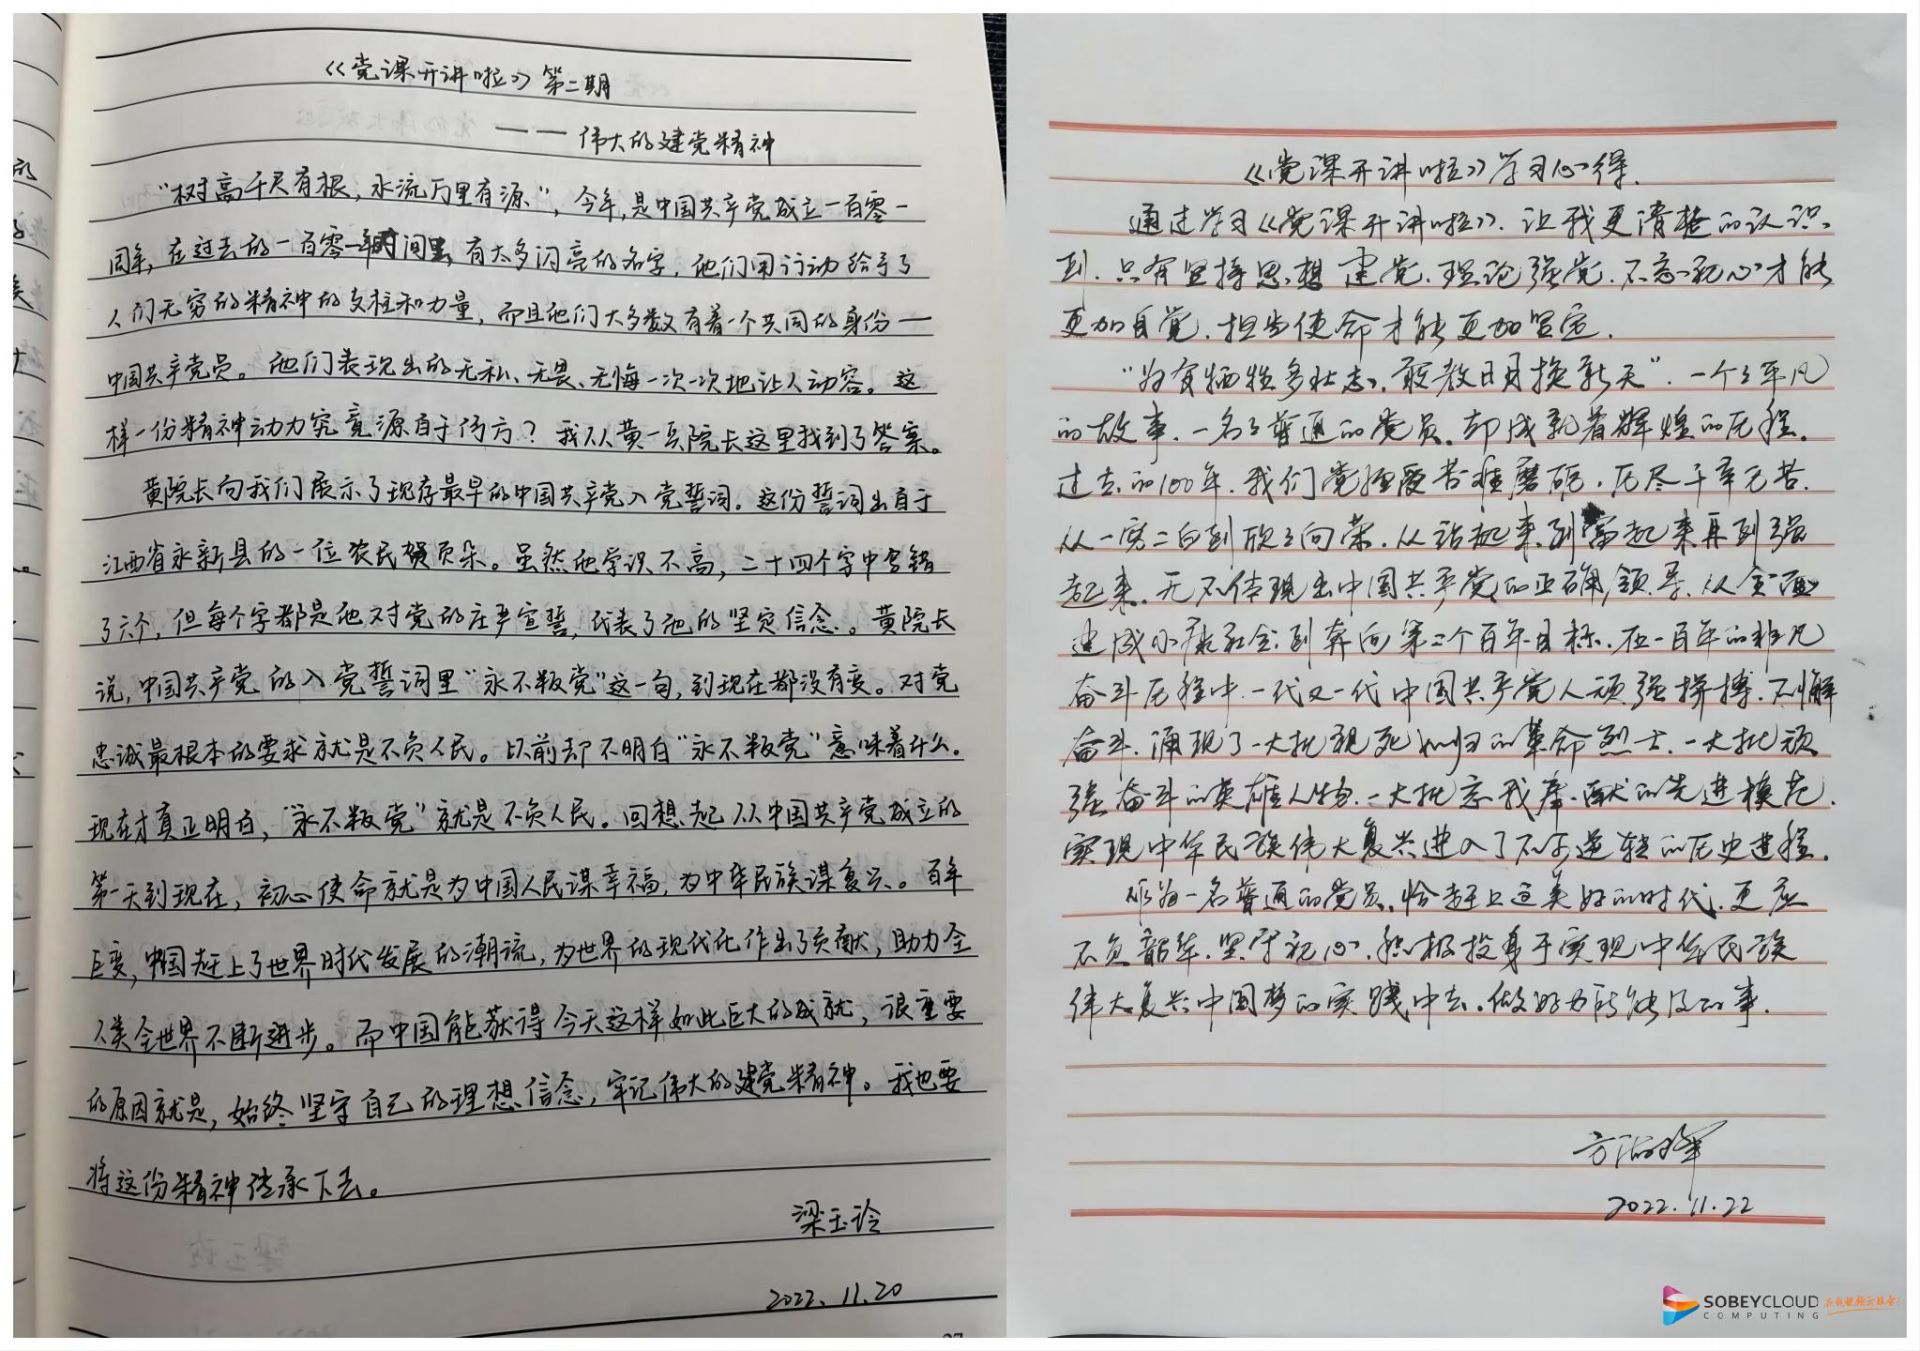 《党课开讲啦》第二期
——伟大的建党精神
“树高千尺有根，水流万里有源”，今年，是中国共产党成立一百零一
周年，在过去的一百零一年时间里，有太多闪亮的名字，他们用行动给予了
人们无穷的精神的支柱和力量，而且他们大多数有着一个共同的身份—
中国共产党员。他们表现出的无私、无畏、无悔一次一次地让人动容。这
样一份精神动力究竟源自于何方？我从黄一兵院长这里找到了答案。
黄院长向我们展示了现存最早的中国共产党入党誓词。这份誓词出自于
江西省永新县的一位农民贺页朵。虽然他学识不高，二十四个字中写错
了六个，但每个字都是他对党的庄严宣誓，代表了他的坚定信念。黄院长
说，中国共产党的入党誓词里“永不叛党”这一句，到现在都没有变。对党
忠诚最根本的要求就是不负人民。以前却不明白“永不叛党”意味着什么。
现在才真正明白，“永不叛党”就是不负人民。回想起从中国共产党成立的
第一天到现在，初心使命就是为中国人民谋幸福，为中华民族谋复兴。百年
巨变，中国赶上了世界时代发展的潮流，为世界的现代化作出了贡献，助力全
人类全世界不断进步。而中国能获得今天这样如此巨大的成就，很重要
的原因就是，始终坚守自己的理想信念，牢记伟大的建党精神。我也要
将这份精神传承下去。
梁玉玲
2022.11.20
《党课开讲啦》学习心得.
通过学习《党课开讲啦》.让我更清楚的认识
到.只有坚持思想建党.理论强党.不忘初心才能
更加自觉.担当使命才能更加坚定.
“为有牺牲多壮志，敢教日月换新天”.一个个平凡
的故事.一名名普通的党员.却成就着辉煌的历程.
过去的100年.我们党经受苦难磨砺.历尽千辛万苦.
从一穷二白到欣欣向荣.从站起来到富起来再到强
起来.无不体现出中国共产党的正确领导.从全面
建成小康社会到奔向第二个百年目标.在一百年的非凡
奋斗历程中.一代又一代中国共产党人顽强拼搏.不懈
奋斗.涌现了一大批视死如归的革命烈士.一大批顽
强奋斗的英雄人物.一大批忘我奉献的先进模范.
实现中华民族伟大复兴进入了不可逆转的历史进程.
作为一名普通的党员.恰赶上这美好的时代.更应
不负韶华.坚守初心.积极投身于实现中华民族
伟大复兴中国梦的实践中去.做好力所能及的事.
2022.11.22
SOBEYCLOUD
COMPUTING